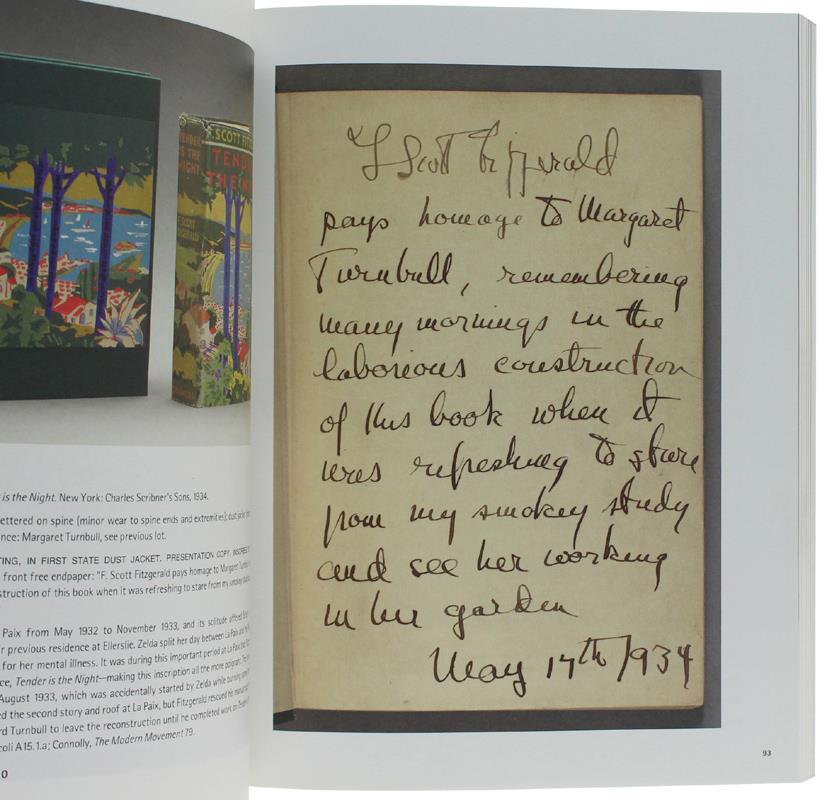 TENDER
IS THE
NIGHT
F. SCOTT
F. SCOTT FITZ
TENDE
THE N
is the Night. New York: Charles Scribner's Sons, 1934.
ettered on spine (minor wear to spine ends and extremities); dust jacket
nce: Margaret Turnbull, see previous lot.
TING, IN FIRST STATE DUST JACKET. PRESENTATION COPY, INSCRIBED
front free endpaper: "F. Scott Fitzgerald pays homage to Margaret
struction of this book when it was refreshing to stare from my smokey
Paix from May 1932 to November 1933, and its solitude
r previous residence at Ellerslie. Zelda split her day between La Paix and
for her mental illness. It was during this important period at La Paix that
ce, Tender is the Night—making this inscription all the more poignant.
August 1933, which was accidentally started by Zelda while burning
ed the second story and roof at La Paix, but Fitzgerald rescued his
rd Turnbull to leave the reconstruction until he completed work on
coli A15.1.a; Connolly, The Modern Movement 79.
0
F Scott Fitzgerald
pays homage to Margaret
Turnbull, remembering
many mornings in the
laborious construction
of this book when it
was refreshing to stare
from my smokey study
and see her working
in her garden
May 17th 1934
93